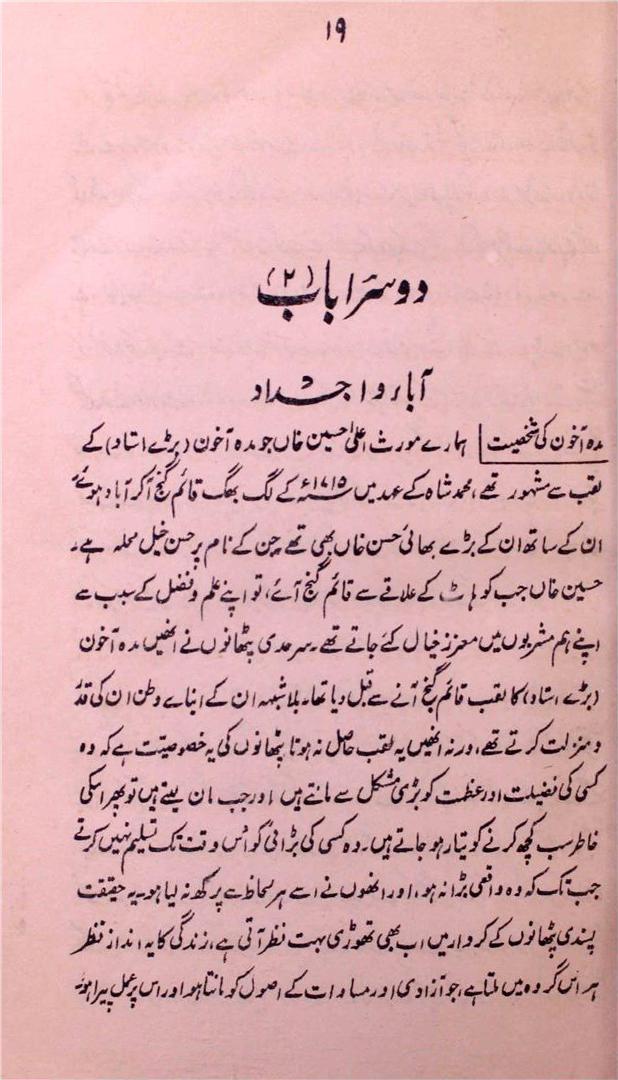 ۱۹
دوسرا باب (۲)
آباء و اجداد
مدہ آخون کی شخصیت ہمارے مورث اعلیٰ حسین خاں جو مدہ آخون (بڑے استاد) کے
لقب سے مشہور تھے، محمد شاہ کے عہد میں ۱۷۱۵ء کے لگ بھگ قائم گنج آکر آباد ہوئے
ان کے ساتھ ان کے بڑے بھائی حسن خاں بھی تھے جن کے نام پر حسن خیل محلہ ہے۔
حسین خاں جب کوہاٹ کے علاقے سے قائم گنج آئے، تو اپنے علم و فضل کے سبب سے
اپنے ہم مشربوں میں معزز خیال کئے جاتے تھے۔ سرحدی پٹھانوں نے انھیں مدہ آخون
(بڑے استاد) کا لقب قائم گنج آنے سے قبل دیا تھا۔ بلاشبہہ ان کے ابنائے وطن ان کی قدر
و منزلت کرتے تھے، ورنہ انھیں یہ لقب حاصل نہ ہوتا پٹھانوں کی یہ خصوصیت ہے کہ وہ
کسی کی فضیلت اور عظمت کو بڑی مشکل سے مانتے ہیں اور جب مان لیتے ہیں تو پھر اسکی
خاطر سب کچھ کرنے کو تیار ہو جاتے ہیں۔ وہ کسی کی بڑائی کو اُس وقت تک تسلیم نہیں کرتے
جب تک کہ وہ واقعی بڑا نہ ہو، اور انھوں نے اسے ہر لحاظ سے پرکھ نہ لیا ہو۔ یہ حقیقت
پسندی پٹھانوں کے کردار میں اب بھی تھوڑی بہت نظر آتی ہے، زندگی کا یہ انداز نظر
ہر اُس گروہ میں ملتا ہے، جو آزادی اور مساوات کے اصول کو مانتا ہو اور اس پر عمل پیرا ہو۔